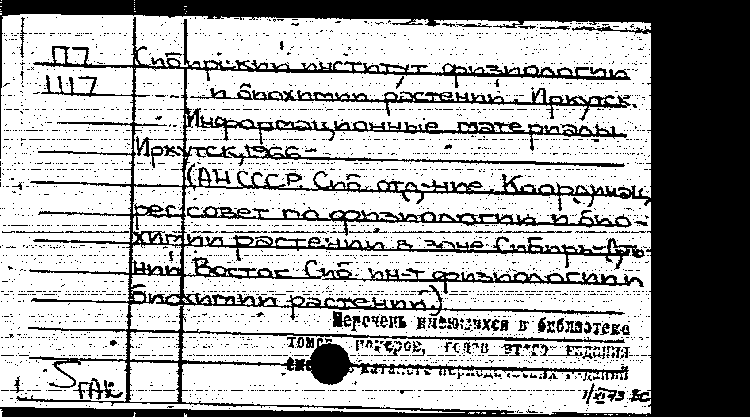 П7
1117
Сибирский институт физиологии
и биохимии растений. Иркутск.
Информационные материалы
Иркутск, 1966-
(АН СССР. Сиб. отд-ние. Координац.
рег. совет по физиологии и био-
химии растений в зоне Сибирь-
ний Восток Сиб. ин-т физиологии и
биохимии растений)
Перечень имеющихся в библиотеке
томов, номеров, годов этого издания
в каталоге периодических изданий
S ГАК